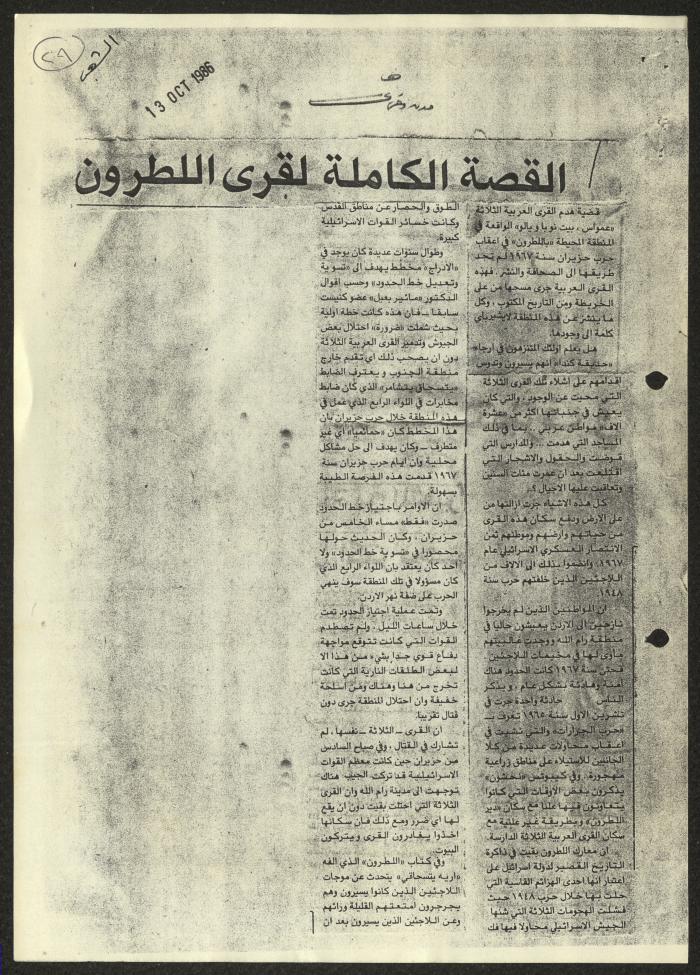 ٢٩
الشعب
13 OCT 1986
مدن وقرى
القصة الكاملة لقرى اللطرون
قضية هدم القرى العربية الثلاثة
«عمواس ، بيت نوبا ويالو» الواقعة في
المنطقة المحيطة «باللطرون» في اعقاب
حرب حزيران سنة ١٩٦٧ لم تجد
طريقها الى الصحافة والنشر. فهذه
القرى العربية جرى مسحها من على
الخريطة ومن التاريخ المكتوب ، وكل
ما ينشر عن هذه المنطقة لا يشير باي
كلمة الى وجودها.
هل يعلم اولئك المتنزهون في ارجاء
«حديقة كندا» انهم يسيرون وتدوس
اقدامهم على اشلاء تلك القرى الثلاثة
التي محيت عن الوجود ، والتي كان
يعيش في جنباتها اكثر من «عشرة
الاف» مواطن عربي .. بما في ذلك
المساجد التي هدمت .. والمدارس التي
قوضت والحقول والاشجار التي
اقتلعت بعد ان عمرت مئات السنين
وتعاقبت عليها الاجيال ؟
كل هذه الاشياء جرت ازالتها من
على الارض ودفع سكان هذه القرى
من حياتهم وارضهم وموطنهم ثمن
الانتصار العسكري الاسرائيلي عام
١٩٦٧، وانضموا بذلك الى الالاف من
اللاجئين الذين خلفتهم حرب سنة
١٩٤٨
ان المواطنين الذين لم يخرجوا
نازحين الى الاردن يعيشون حاليا في
منطقة رام الله ووجدت غالبيتهم
مأوى لها في مخيمات اللاجئين
فحتى سنة ١٩٦٧ كانت الحدود هناك
آمنة وهادئة بشكل عام ، ويذكر
الناس حادثة واحدة جرت في
تشرين الاول سنة ١٩٦٥ تعرف بـ
«حرب الجرارات» والتي نشبت في
اعقاب محاولات عديدة من كلا
الجانبين للاستيلاء على مناطق زراعية
مهجورة. وفي كيبوتس «نحشون»
يذكرون بعض الاوقات التي كانوا
يتعاونون فيها علنا مع سكان «دير
اللطرون» وبطريقة غير علنية مع
سكان القرى العربية الثلاثة الدارسة.
ان معارك اللطرون بقيت في ذاكرة
التاريخ القصير لدولة اسرائيل على
اعتبار انها احدى الهزائم القاسية التي
حلت بها خلال حرب ١٩٤٨ حيث
فشلت الهجومات الثلاثة التي شنها
الجيش الاسرائيلي محاولا فيها فك
الطوق والحصار عن مناطق القدس
وكانت خسائر القوات الاسرائيلية
كبيرة.
وطوال سنوات عديدة كان يوجد في
«الادراج» مخطط يهدف الى «تسوية
وتعديل خط الحدود» وحسب اقوال
الدكتور «مائير بعيل» عضو كنيست
سابقا ـ فان هذه كانت خطة اولية
بحيث شملت «ضرورة» احتلال بعض
الجيوش وتدمير القرى العربية الثلاثة
دون ان يصحب ذلك اي تقدم خارج
منطقة الجنوب ويعترف الضابط
«يتسحاقي يتشامر» الذي كان ضابط
مخابرات في اللواء الرابع الذي عمل في
هذه المنطقة خلال حرب حزيران بان
هذا المخطط كان «حمائميا» أي غير
متطرف ـ وكان يهدف الى حل مشاكل
محلية وان ايام حرب حزيران سنة
١٩٦٧ قدمت هذه الفرصة الطيبة
بسهولة.
ان الاوامر باجتياز خط الحدود
صدرت «فقط» مساء الخامس من
حزيران ، وكان الحديث حولها
محصورا في «تسوية خط الحدود» ولا
أحد كان يعتقد بان اللواء الرابع الذي
كان مسؤولا في تلك المنطقة سوف ينهي
الحرب على ضفة نهر الاردن.
وتمت عملية اجتياز الحدود تمت
خلال ساعات الليل ، ولم تصطدم
القوات التي كانت تتوقع مواجهة
دفاع قوي جدا بشيء من هذا الا
لبعض الطلقات النارية التي كانت
تخرج من هنا وهناك ومن اسلحة
خفيفة وان احتلال المنطقة جرى دون
قتال تقريبا.
ان القرى ـ الثلاثة ـ نفسها ، لم
تشارك في القتال ، وفي صباح السادس
من حزيران حين كانت معظم القوات
الاسرائيلية قد تركت الجيب هناك
توجهت الى مدينة رام الله وان القرى
الثلاثة التي احتلت بقيت دون ان يقع
لها أي ضرر ومع ذلك فان سكانها
اخذوا يغادرون القرى ويتركون
البيوت.
وفي كتاب «اللطرون» الذي الفه
«اريه يتسحاقي» يتحدث عن موجات
اللاجئين الذين كانوا يسيرون وهم
يجرجرون أمتعتهم القليلة ورائهم
وعن اللاجئين الذين يسيرون بعد ان